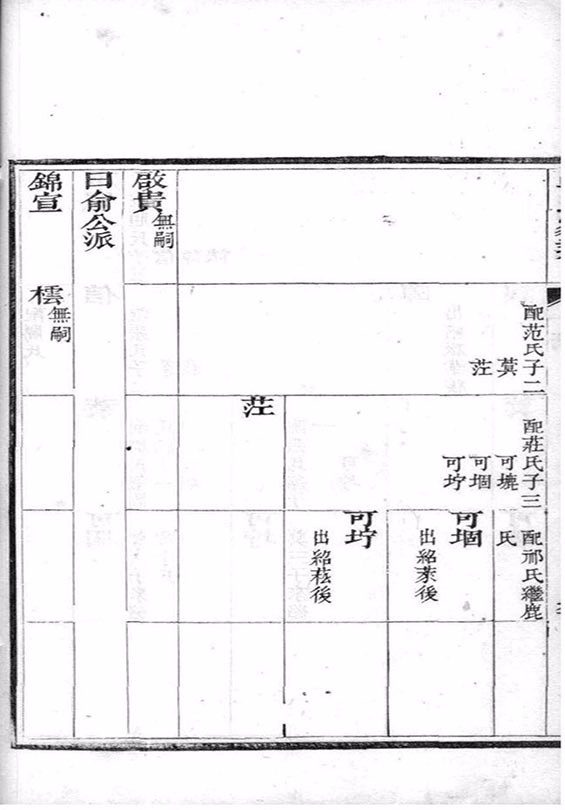 配范氏子二
蓂
茳
配莊氏子三
可墝
可堌
可坾
配邢氏繼鹿
氏
可堌
出紹萊後
可坾
出紹菘後
茳
啟貴無嗣
曰俞公派
錦宣
橒無嗣